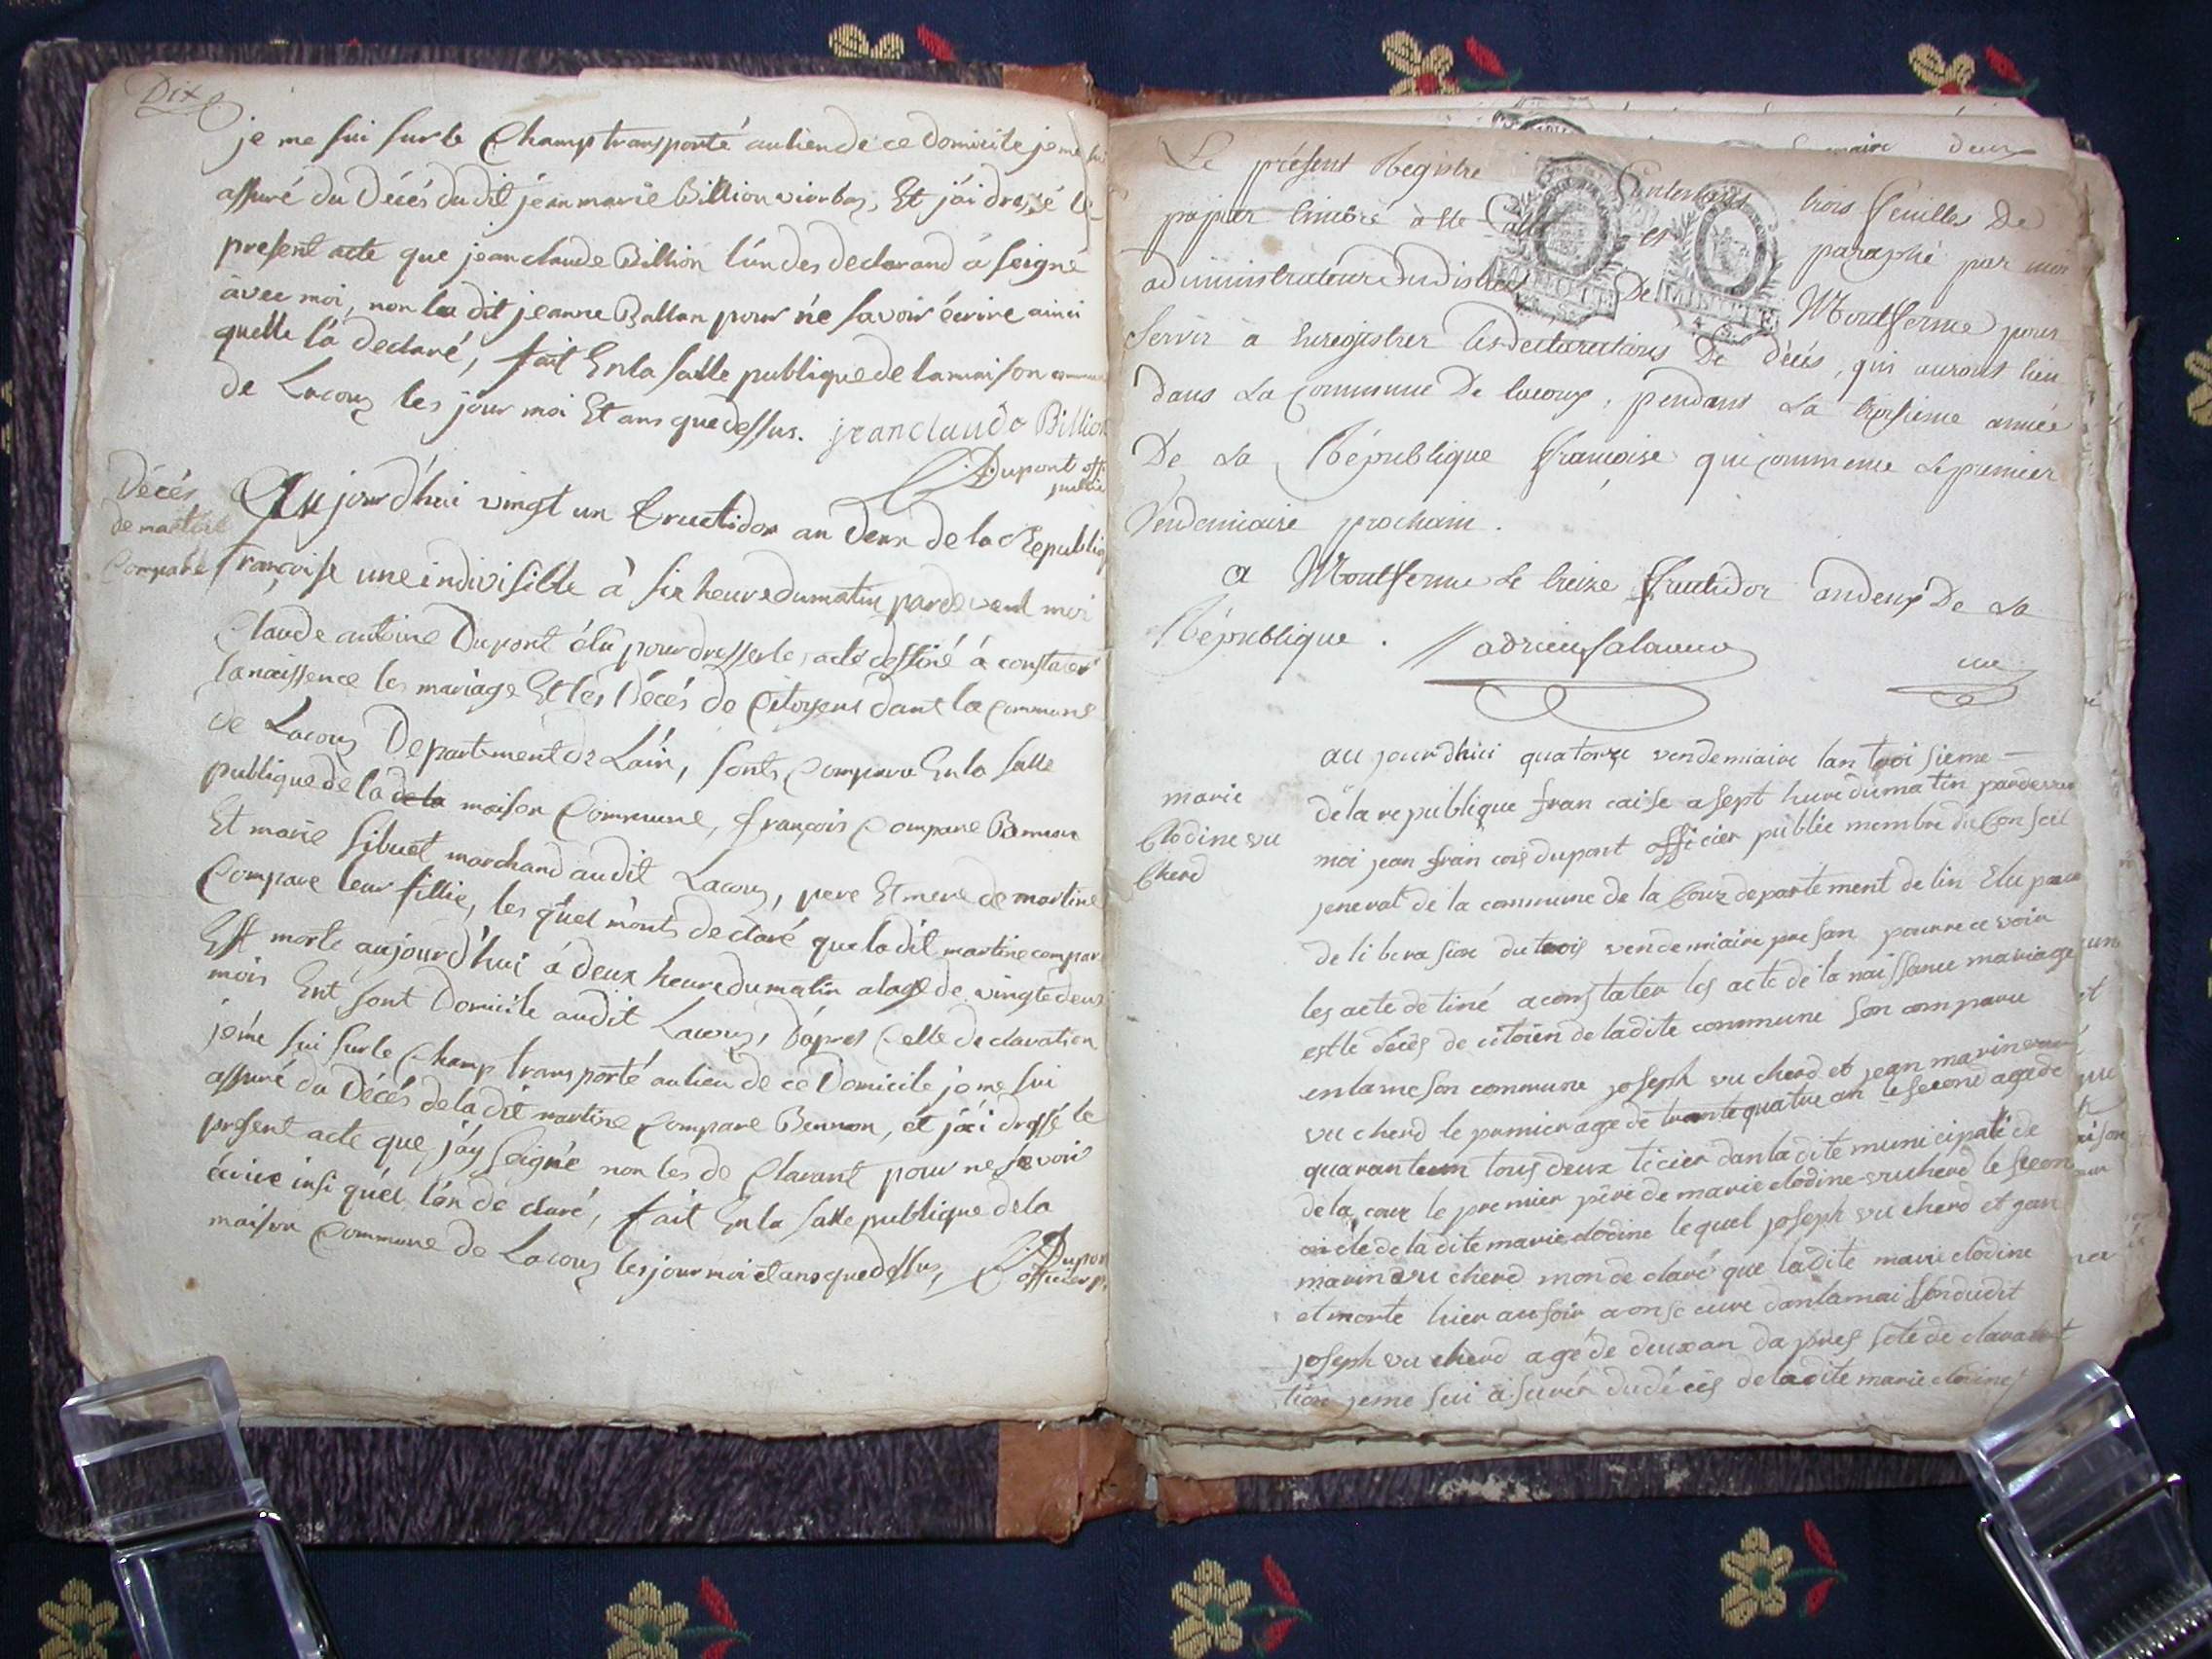 Dix
je me sui sur le Champ transporté au lieu de ce domicile je me sui
assuré du Décés dudit jean marie Billion viorbos, Et j'ai dressé le
present acte que jean claude Billion l'un des declarand á seigné
avec moi, non la dit jeanne Ballan pour ne savoir écrire ainci
quelle la declaré, fait En la salle publique de la maison commune
de Lacoux les jour moi Et ans que dessus. jean claude Billion
Dupont off public
Décés
de martine
Compare
Aujourd'hui vingt un fructidor an Deux de la Republiq
françoise une indivisible à six heure du matin pardevent moi
Claude antoine Dupont élu pour dresser le acte destiné à constater
la naissence les mariage Et les Décés de Citoyens dans la commune
de Lacoux Departement de L'ain, sonts Comparu En la salle
publique de la de la maison Commune, françois Compare Bennon
Et marie sibuet marchand audit Lacoux, pere Et mere de martine
Compare leur fillie, les quel m'onts declaré que la dit martine compare
Est morte aujourd'hui á deux heure du matin a lage de vingt deux
mois Ent sont Domicile audit Lacoux, D'apres Celle declaration
je me sui sur le Champ transporté au lieu de ce Domicile je me sui
assuré du Décés de la dit martine Compare Bennon, et j'ai dressé le
present acte que j'ay seigné non les de Clarant pour ne savoir
écrire insi qu'el l'on de claré, fait En la salle publique de la
maison Commune de Lacoux les jour moi et ans que dessus,
Dupont
officier p.
Le présent Registre Contenant trois feuilles De
papier timbré à été Coté et paraphé par moi
administrateur du district De Montferme pour
Servir à Enregistrer les declarations De décés, qui auront lieu
dans La Commune De lacoux, pendant La troisieme année
De La République françoise qui commence Le premier
Vendemiaire prochain.
a Montferme Le treize fructidor an deux De La
République. adrien Salavuo
une
marie
Clodine vu
Cherd
au jourdhui quatorze vendemiaire lan troi sieme
de la republique fran caise a sept hure du matin pardevan
moi jean frain cois dupont officier public membre du Conseil
jeneral de la commune de la Couz departement de lin Elu par
de li bera sion du trois vendemiaire pre san pourre ce voir
les acte de tiné a constater les acte de la naissance mariage
est le décès de citoien de ladite commune son comparu
en la me son commune joseph vu cherd et jean marin
vu cherd le premier age de trante quatre an le second age de
quarante un tous deux ticier dan la dite municipali de
de la couz le premier père de marie clodine vucherd le secon
oncle de la dite marie clodine le quel joseph vu cherd et jean
marin vu cherd mon de claré que ladite marie clodine
et morte hier au soir a onse eure dan la mai son dudit
joseph vu cherd agé de deux an da pres sete de clara
tion jeme sui a suré du décès de ladite marie clodine